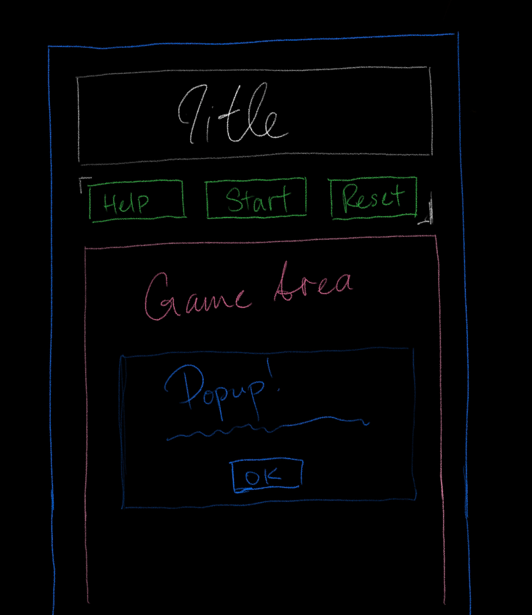 Title
Help Start Reset
Game Area
Popup!
OK